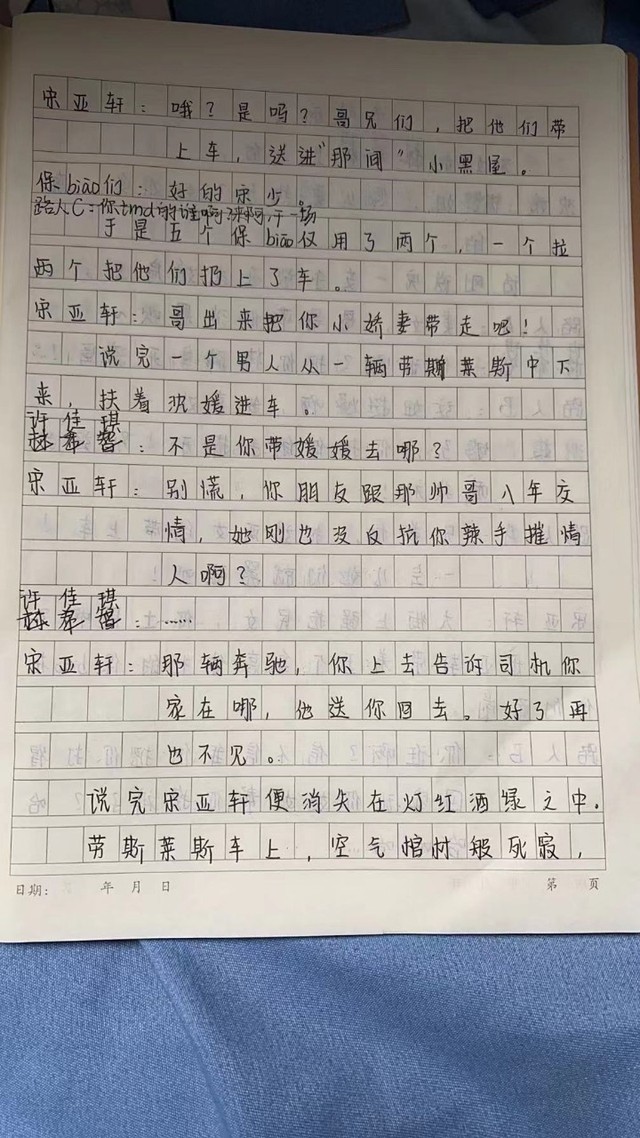 宋亚轩：哦？是吗？哥兄们，把他们带
上车，送进"那间"小黑屋。
保biāo们：好的宋少。
路人C：你tmd的谁啊？来啊，干一场
于是五个保biāo仅用了两个，一个拉
两个把他们扔上了车。
宋亚轩：哥出来把你小娇妻带走吧！
说完一个男人从一辆劳斯莱斯中下
来，扶着沈媛进车。
许佳琪
：不是你带媛媛去哪？
宋亚轩：别慌，你朋友跟那帅哥八年交
情，她刚也没反抗你辣手摧情
人啊？
许佳琪
：……
宋亚轩：那辆奔驰，你上去告诉司机你
家在哪，他送你回去。好了再
也不见。
说完宋亚轩便消失在灯红酒绿之中.
劳斯莱斯车上，空气棺材般死寂，
日期： 年 月 日 第 页